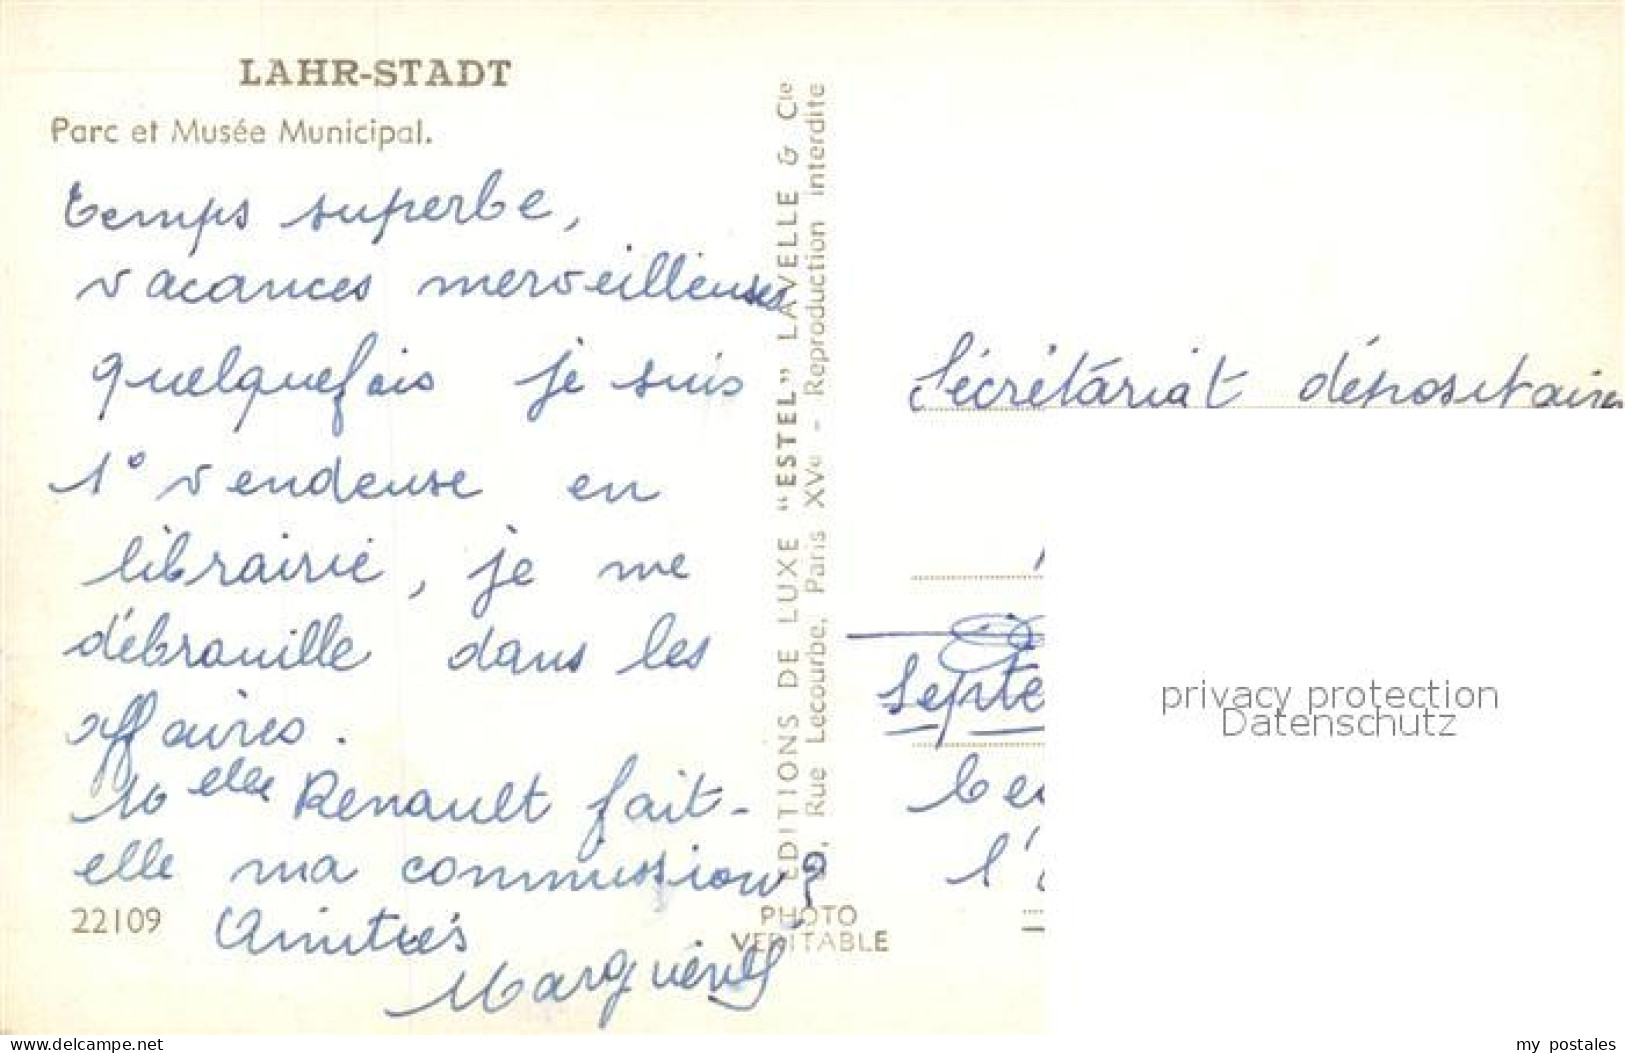 LAHR-STADT
Parc et Musée Municipal.
temps superbe,
vacances merveilleuses
quelquefois je suis
1° vendeuse en
librairie, je me
débrouille dans les
affaires.
Melle Renault fait-
elle ma commission?
22109
Amitiés
EDITIONS DE LUXE "ESTEL" LAVELLE & Cie
Rue Lecourbe, Paris XVe - Reproduction interdite
PHOTO
VERITABLE
Sécrétáriat dépositaire
Septe
l'
privacy protection
Datenschutz
www.delcampe.net
my postales